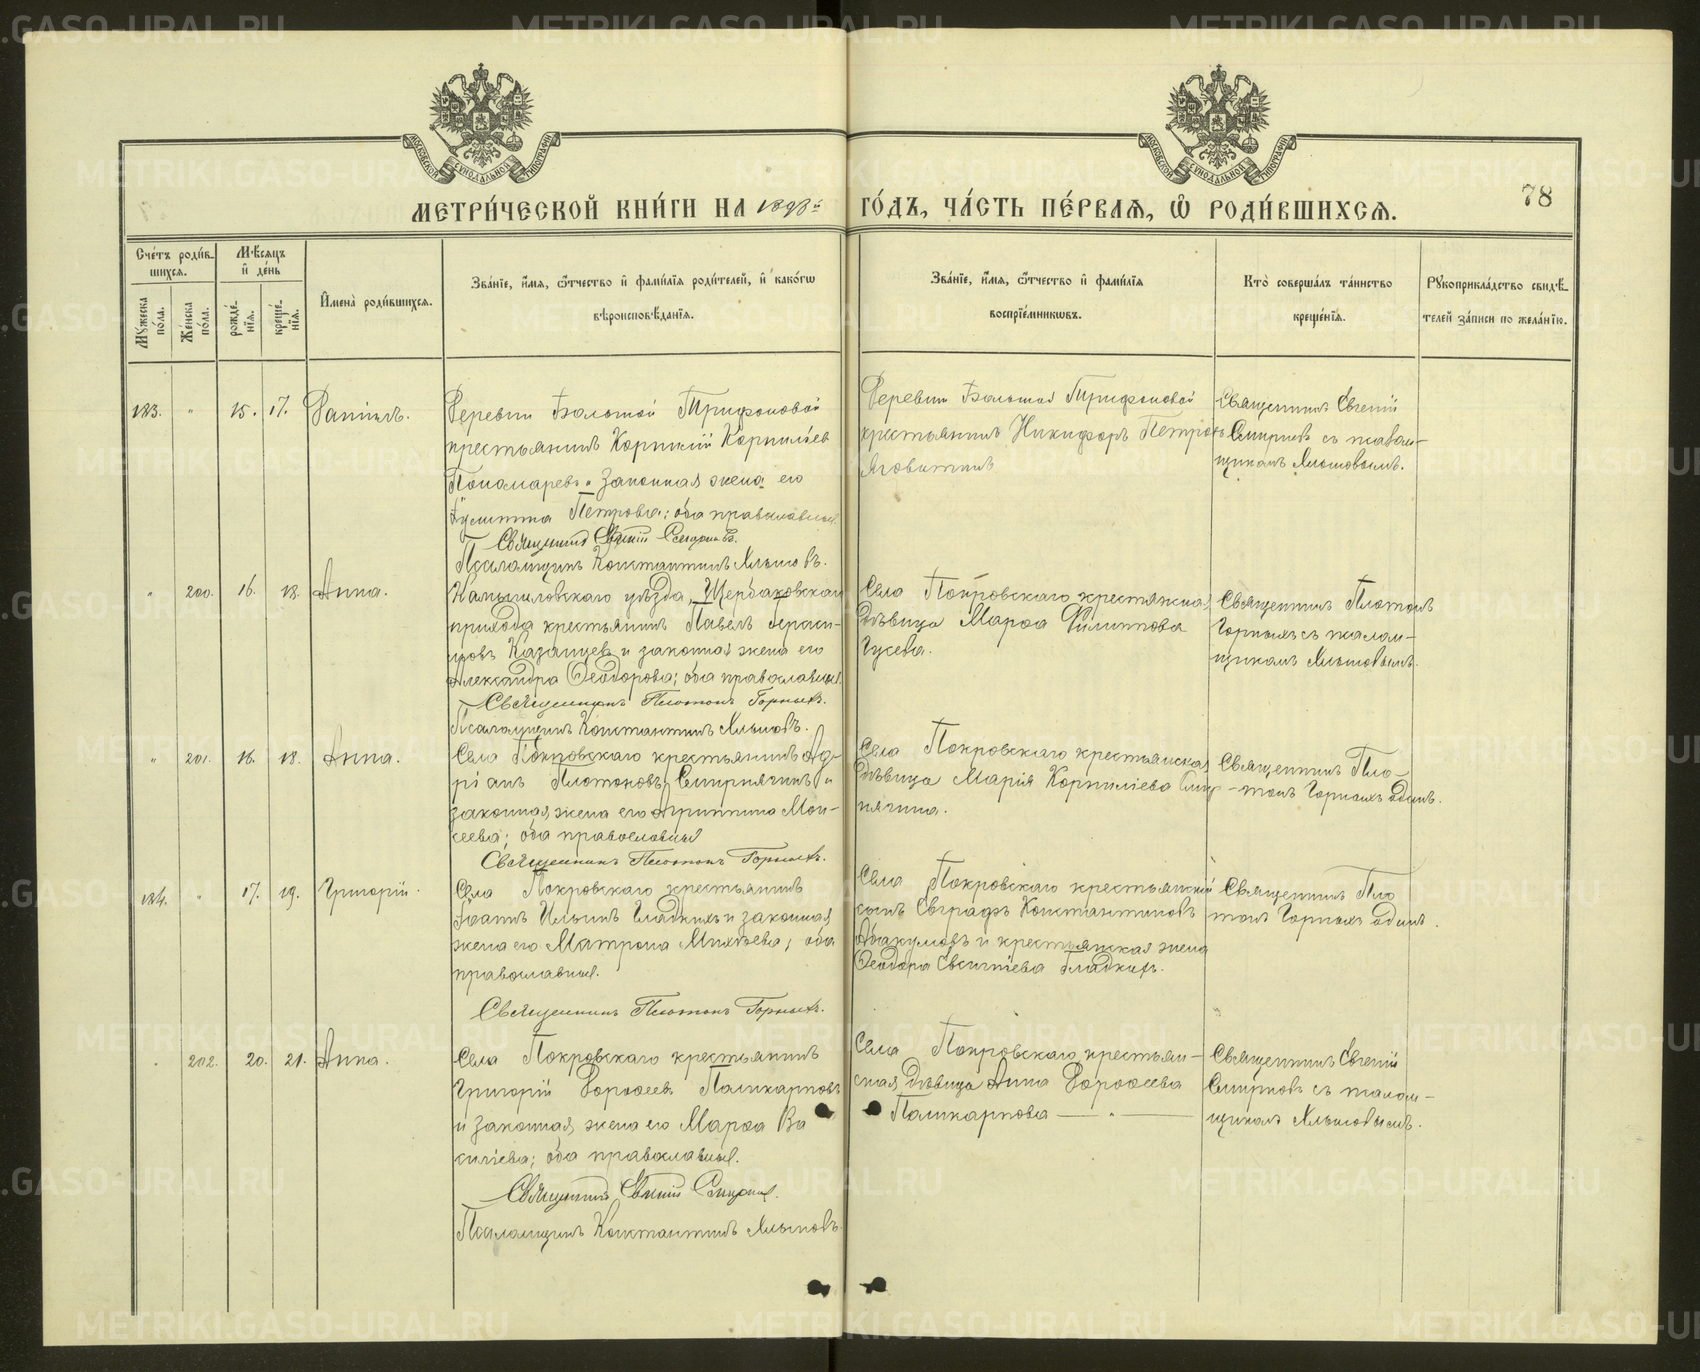 МЕТРИ́ЧЕСКОЙ КНИ́ГИ НА 1898й ГО́ДЪ, ЧА́СТЬ ПЕ́РВАЯ, Ѡ РОДИ́ВШИХСЯ.
78
Сче́тъ роди́в-
шихся.
Мѣ́сяцъ
и де́нь
Мꙋ́жеска по́ла.
Же́нска по́ла.
рожде́нїя.
креще́нїя.
Имена̀ роди́вшихся.
Зва́нїе, и́мя, ѻ́тчество и фами́лїя роди́телей, и како́гѡ
вѣроисповѣ́данїя.
Зва́нїе, и́мя, ѻ́тчество и фами́лїя
воспрїе́мникѡвъ.
Кто̀ соверша́лъ та́инство
креще́нїя.
Рꙋкоприкла́дство свидѣ́-
телей за́писи по жела́нїю.
183. " 15. 17. Данiилъ.
Деревни Большой Трифоновой
крестьянинъ Корнилiй Корнилiев
Пономаревъ и законная жена его
Iулитта Петрова; оба православные.
Священникъ Евгенiй Смирновъ.
Псаломщикъ Константинъ Ялымовъ.
Деревни Большой Трифоновой
крестьянинъ Никифоръ Петровъ
Яговитинъ
Священникъ Евгенiй
Смирновъ съ псалом-
щикомъ Ялымовымъ.
" 200. 16. 18. Анна.
Камышловскаго уѣзда, Щербаковскаго
прихода крестьянинъ Павелъ Гераси-
мовъ Казанцевъ и законная жена его
Александра Ѳеодорова; оба православные.
Священникъ Платонъ Горныхъ.
Псаломщикъ Константинъ Ялымовъ.
Села Покровскаго крестьянская
дѣвица Марѳа Филиппова
Гусева.
Священникъ Платонъ
Горныхъ съ псалом-
щикомъ Ялымовымъ.
" 201. 16. 18. Анна.
Села Покровскаго крестьянинъ Ад-
рiанъ Платоновъ Смирнягинъ и
законная жена его Агриппина Мои-
сеева; оба православные
Священникъ Платонъ Горныхъ.
Села Покровскаго крестьянская
дѣвица Марiя Корнилiева Смир-
нягина.
Священникъ Пла-
тонъ Горныхъ одинъ.
184. " 17. 19. Григорiй.
Села Покровскаго крестьянинъ
Iоаннъ Ильинъ Гладкихъ и законная
жена его Матрона Михѣева; оба
православные.
Священникъ Платонъ Горныхъ.
Села Покровскаго крестьянскiй
сынъ Евграфъ Константиновъ
Абакумовъ и крестьянская жена
Ѳеодора Евсигнiева Гладкихъ.
Священникъ Пла
тонъ Горныхъ одинъ.
" 202. 20. 21. Анна.
Села Покровскаго крестьянинъ
Григорiй Дороѳеевъ Поликарповъ
и законная жена его Марѳа Ва
силiева; оба православные.
Священникъ Евгенiй Смирновъ.
Псаломщикъ Константинъ Ялымовъ.
Села Покровскаго крестьян-
ская дѣвица Анна Дороѳеева
Поликарпова — " —
Священникъ Евгенiй
Смирновъ съ псалом-
щикомъ Ялымовымъ.
METRIKI.GASO-URAL.RU